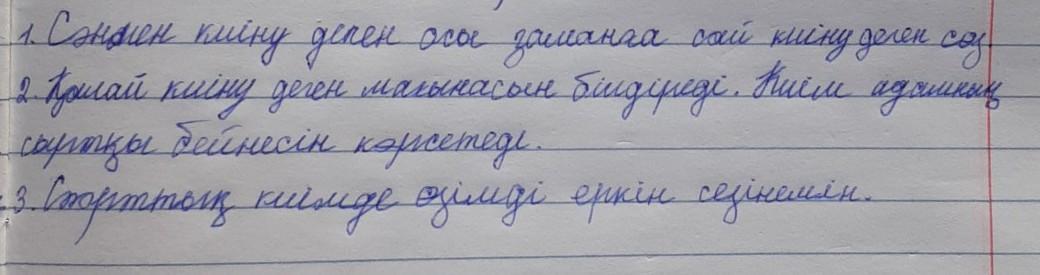 1. Сәнмен киіну деген осы заманға сай киіну деген сөз.
2. Қалай киіну деген мағынасын білдіреді. Киім адамның
сыртқы бейнесін көрсетеді.
3. Спорттық киімде өзімді еркін сезінемін.